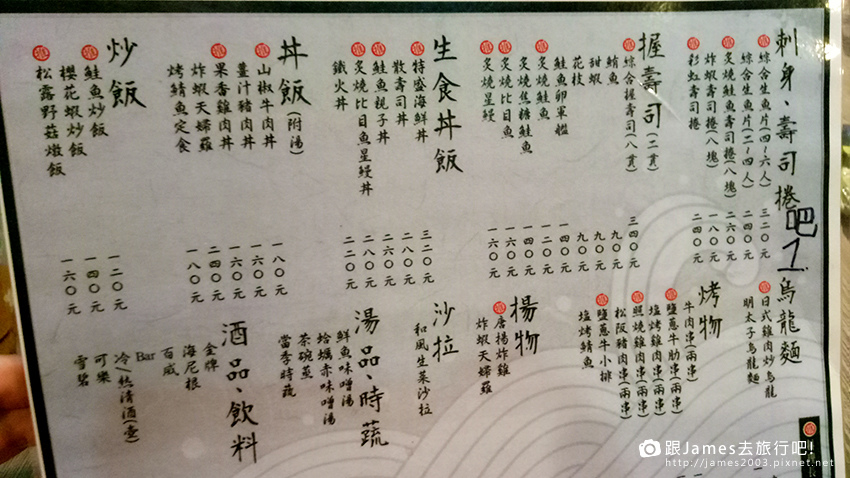 刺身、壽司捲
綜合生魚片(四~六人) 三二〇元
綜合生魚片(二~四人) 二四〇元
炙燒鮭魚壽司捲(八塊) 二六〇元
炸蝦壽司捲(八塊) 一八〇元
彩虹壽司捲 二四〇元
握壽司(二貫)
綜合握壽司(八貫) 三四〇元
鮪魚 九〇元
甜蝦 九〇元
花枝 九〇元
鮭魚卵軍艦 一四〇元
炙燒鮭魚 一二〇元
炙燒焦糖鮭魚 一四〇元
炙燒比目魚 一六〇元
炙燒星鰻 一六〇元
生食丼飯
特盛海鮮丼 三二〇元
散壽司丼 二八〇元
鮭魚親子丼 二八〇元
炙燒比目魚星鰻丼 二八〇元
鐵火丼 二二〇元
丼飯(附湯)
山椒牛肉丼 一八〇元
薑汁豬肉丼 一六〇元
果香雞肉丼 一六〇元
炸蝦天婦羅 二四〇元
烤鯖魚定食 一八〇元
炒飯
鮭魚炒飯 一二〇元
櫻花蝦炒飯 一四〇元
松露野菇燉飯 一六〇元
吧1
烏龍麵
日式雞肉炒烏龍
明太子烏龍麵
烤物
牛肉串(兩串)
鹽蔥牛肋串(兩串)
塩烤雞肉串(兩串)
照燒雞肉串(兩串)
松阪豬肉串(兩串)
鹽蔥牛小排
塩烤鯖魚
揚物
唐揚炸雞
炸蝦天婦羅
沙拉
和風生菜沙拉
湯品、時蔬
鮮魚味噌湯
蛤蠣赤味噌湯
茶碗蒸
當季時蔬
酒品、飲料
金牌
海尼根
百威
Bar
冷/熱清酒(壺)
可樂
雪碧
跟James去旅行吧!
http://james2003.pixnet.net